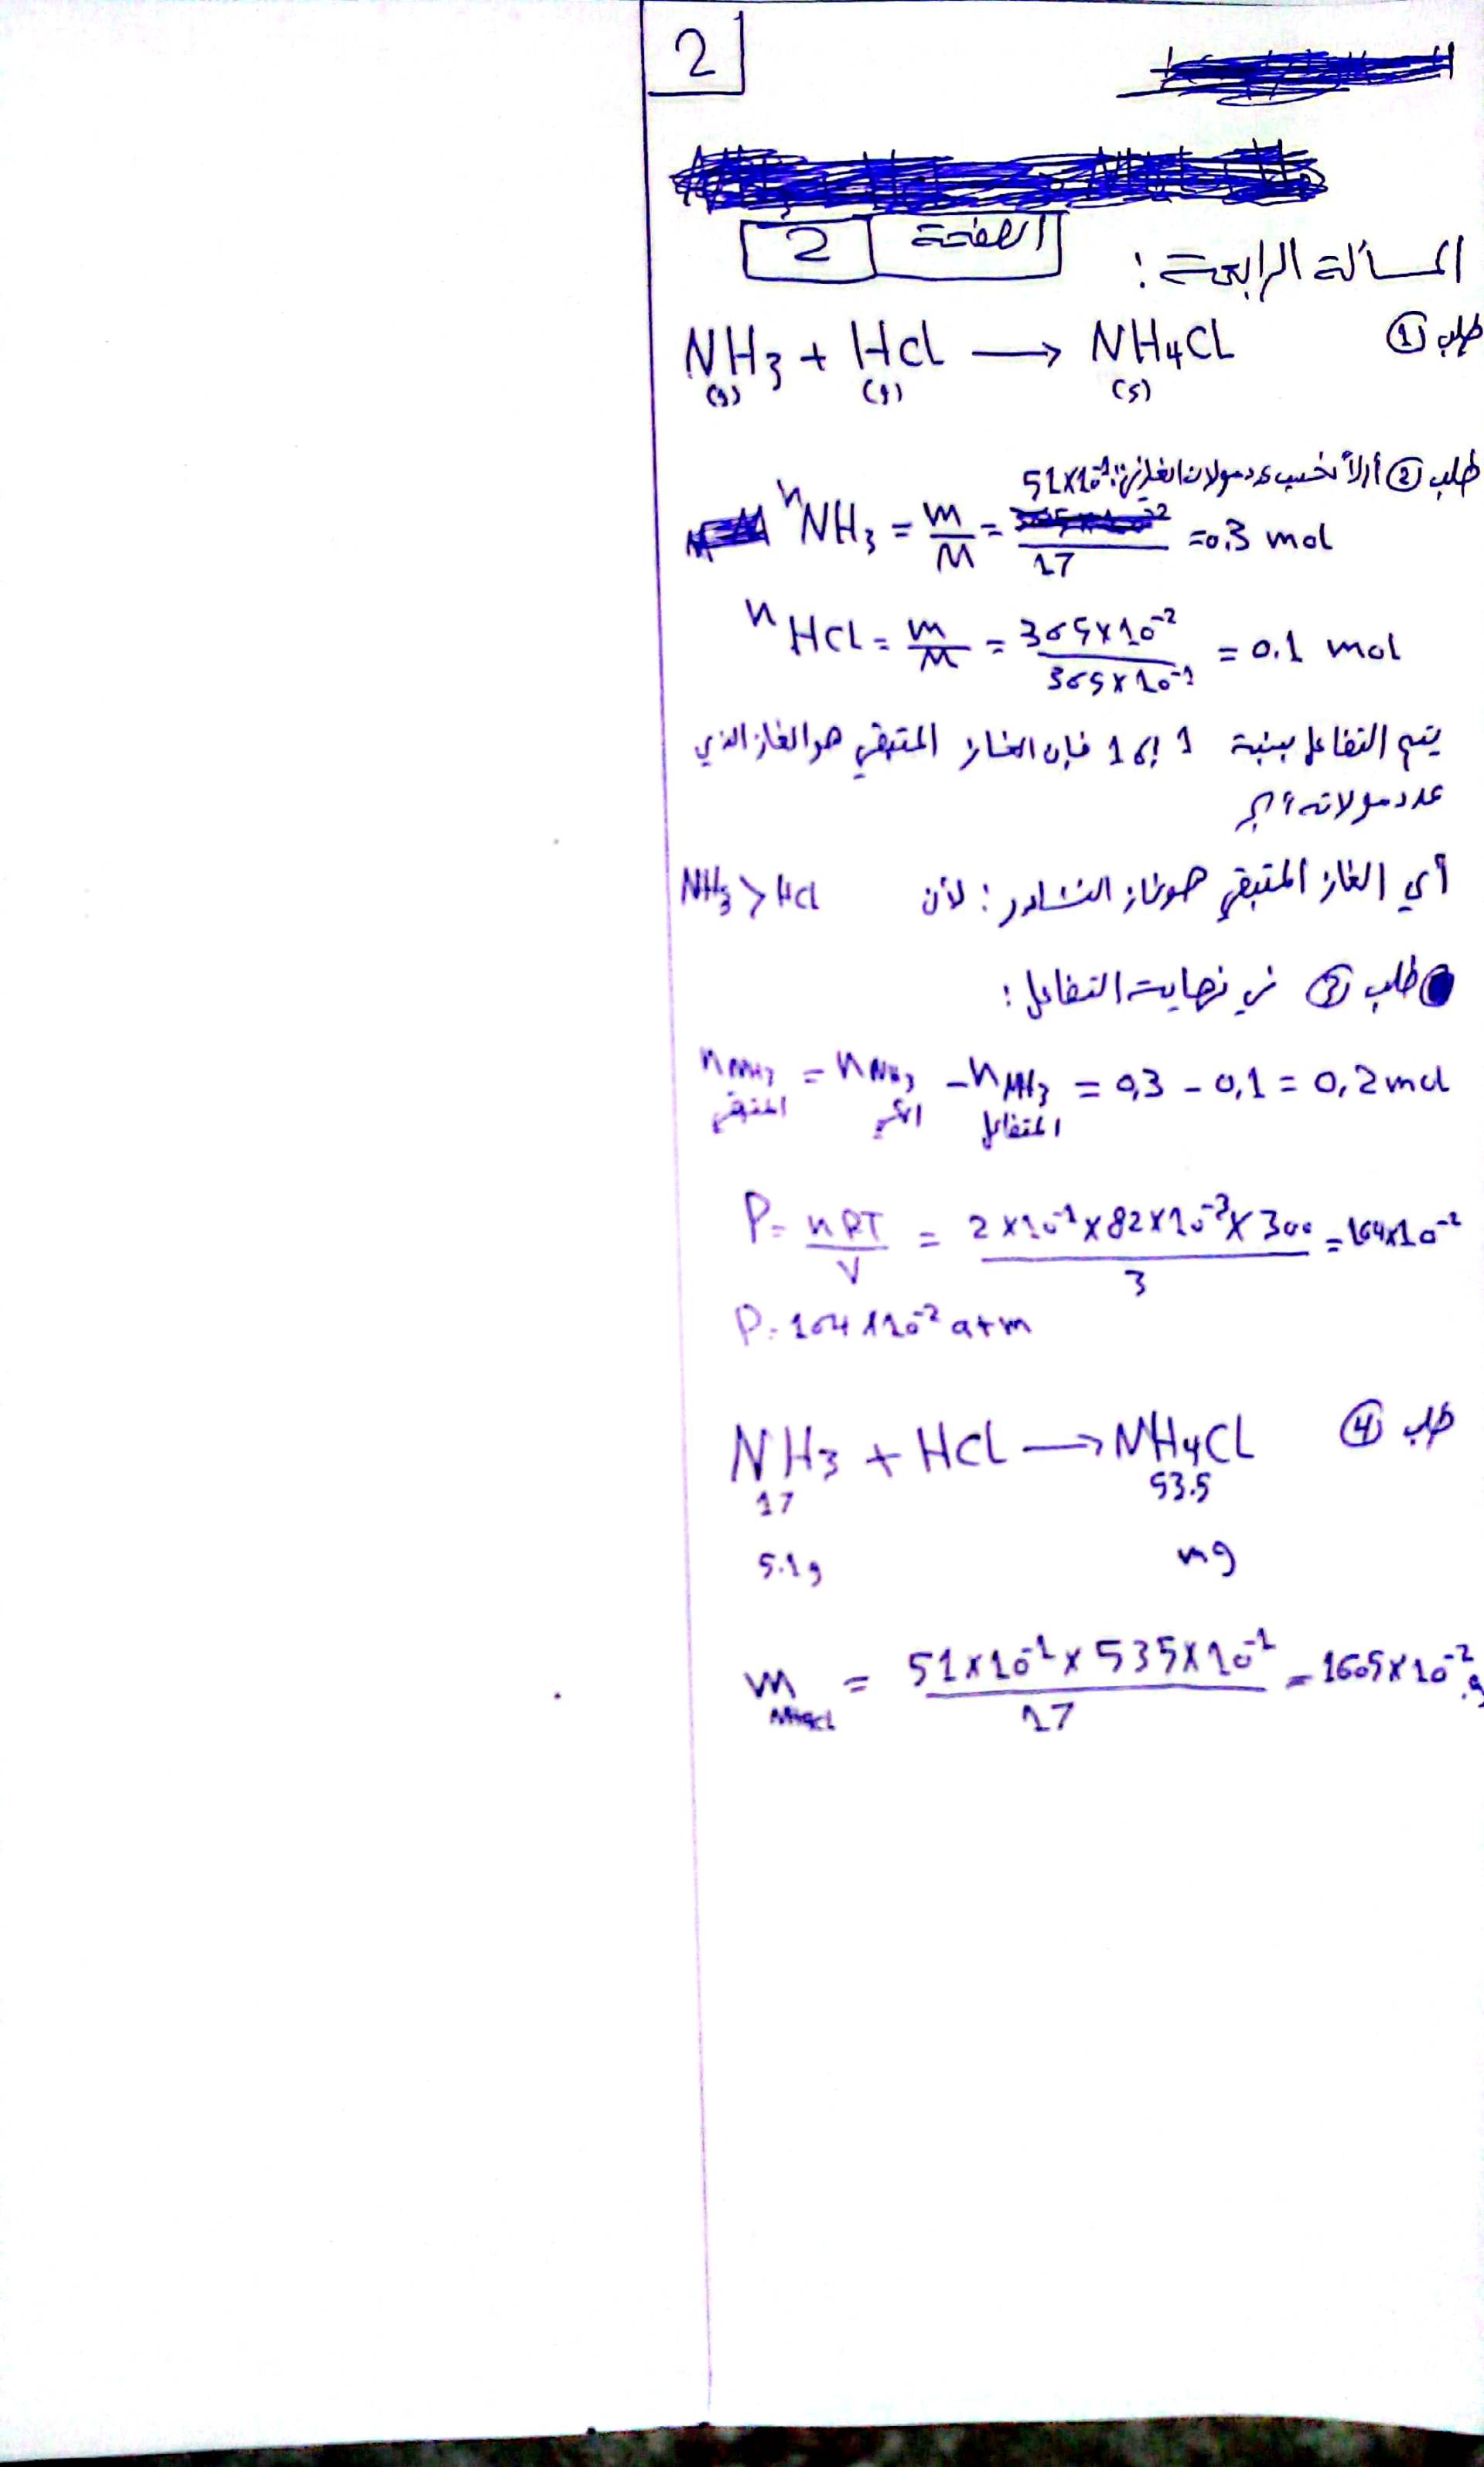 2
الصفحة 2
المسألة الرابعة :
طلب ①
NH3 + HCl → NH4CL
(g) (g) (s)
طلب ② أولاً نحسب عدد مولات الغازين:
nNH3 = m/M = 51x10^-1/17 = 0.3 mol
nHCL = m/M = 365x10^-2/365x10^-1 = 0.1 mol
يتم التفاعل بنسبة 1 إلى 1 فإن الغاز المتبقي هو الغاز الذي
عدد مولاته أكبر
أي الغاز المتبقي هو غاز النشادر : لأن NH3 > HCl
طلب ③ في نهاية التفاعل :
nNH3 = nNH3 - nNH3 = 0,3 - 0,1 = 0,2 mol
المتبقي المتفاعل
P = nRT/V = 2x10^-1x82x10^-3x300/3 = 164x10^-2
P = 164x10^-2 atm
طلب ④
NH3 + HCL → NH4CL
17 53.5
5.1g mg
mNH4Cl = 51x10^-1x535x10^-1/17 = 1605x10^-2 g